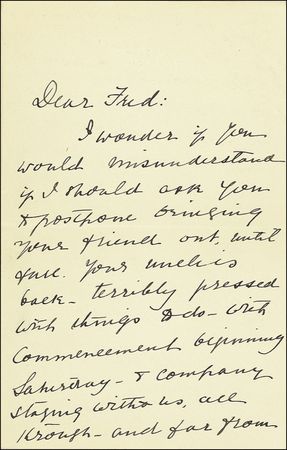 Dear Fred:
I wonder if you
would misunderstand
if I should ask you
to postpone bringing
your friend out, until
Your uncle is
back - terribly pressed
with things to do - with
Commencement beginning
Saturday - & company
staying with us, all
through - and far from